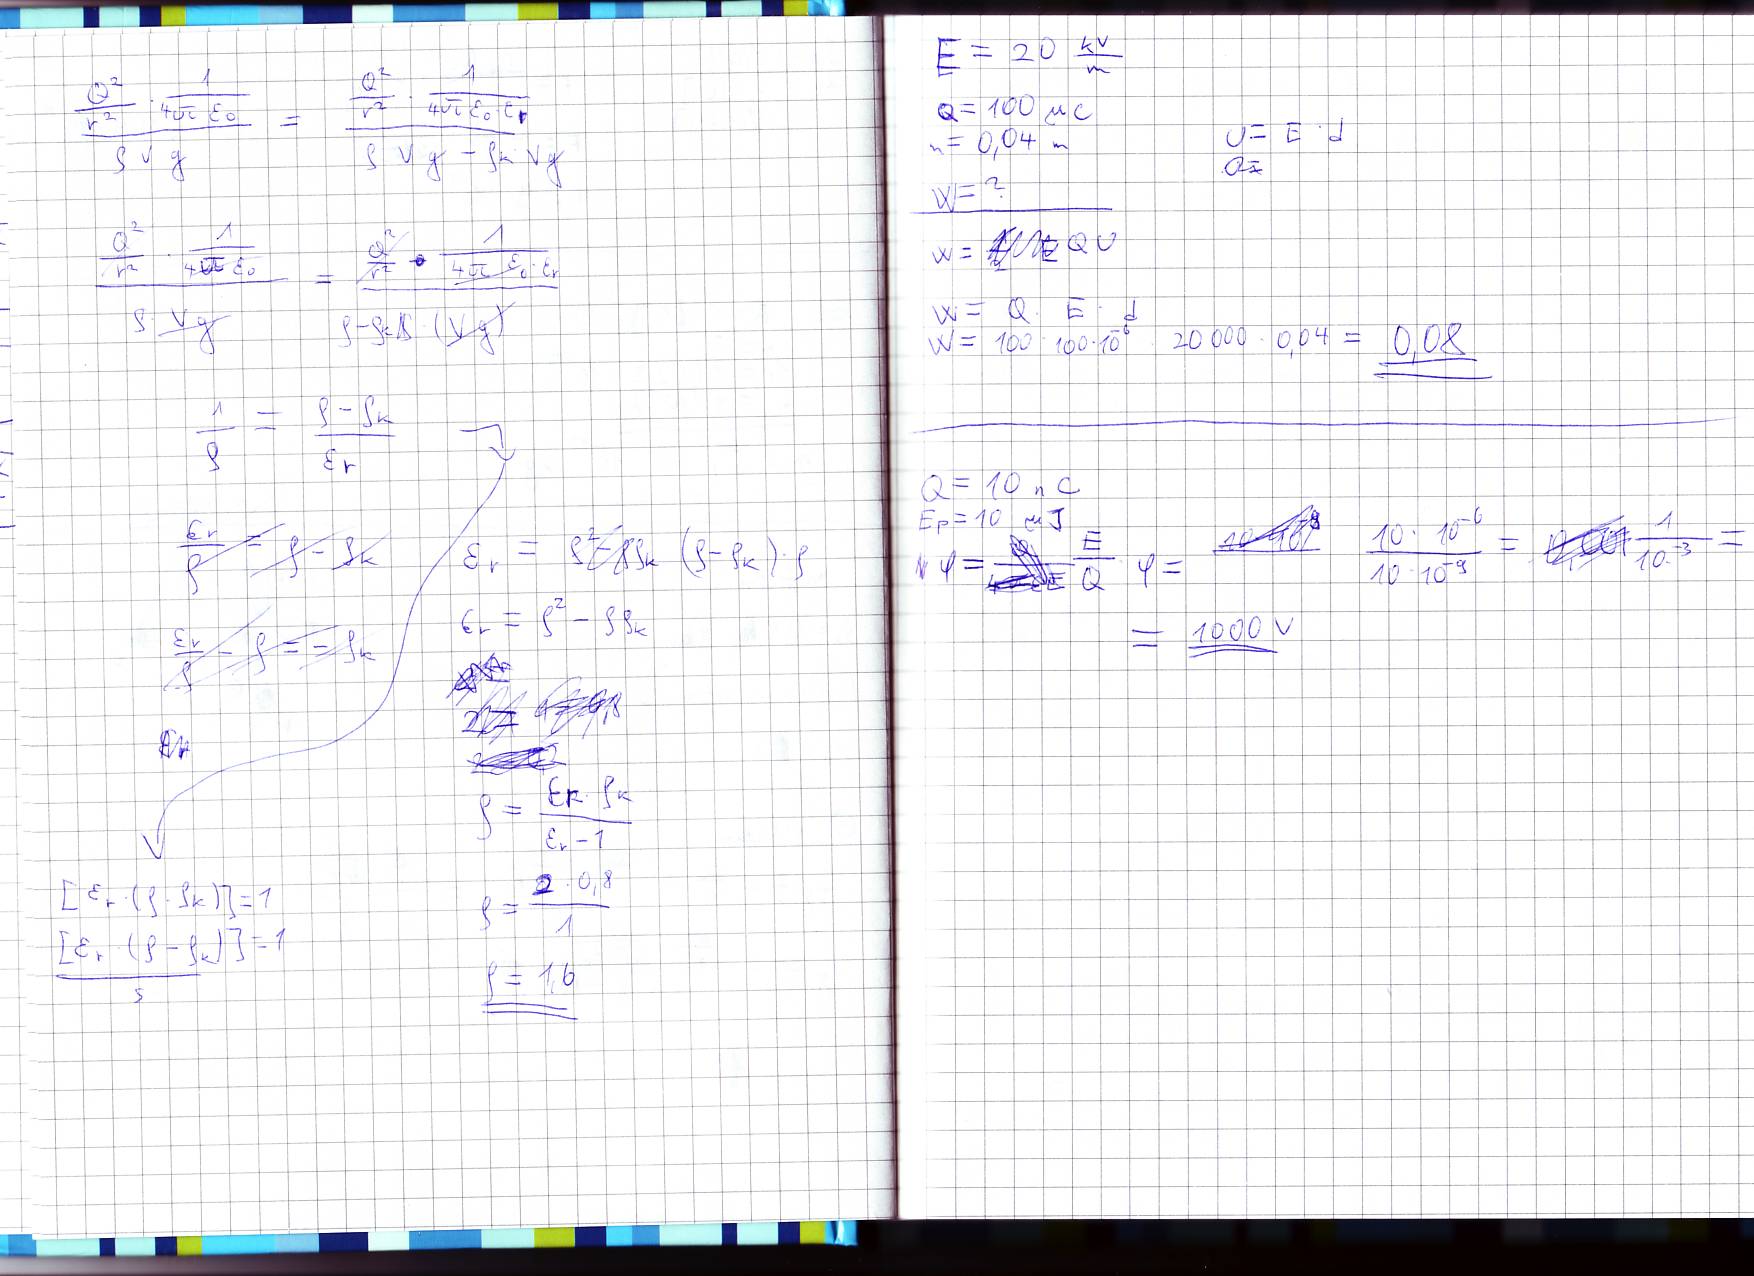 Q²/r² · 1/(4π ε₀) / ρ V g = Q²/r² · 1/(4π ε₀ · εr) / ρ V g − ρk · V g
Q²/r² · 1/(4π ε₀) / ρ · V g = Q²/r² · 1/(4π ε₀ · εr) / ρ − ρk · (V g)
1/ρ = ρ − ρk / εr
εr/ρ = ρ − ρk
εr/ρ − ρ = − ρk
εr
[εr · (ρ · ρk)] = 1
[εr · (ρ − ρk)] = 1 / s
εr = ρ² − ρρk (ρ − ρk) · ρ
εr = ρ² − ρρk
ρ = εr · ρk / εr − 1
ρ = 2 · 0,8 / 1
ρ = 1,6
E = 20 kV/m
Q = 100 μC
n = 0,04 m
U = E · d
Q =
W = ?
W = Q U
W = Q · E · d
W = 100 · 100 · 10⁻⁶ · 20 000 · 0,04 = 0,08
Q = 10 n C
Ep = 10 μJ
φ = E/Q φ = 10 · 10⁻⁶ / 10 · 10⁻⁹ = 1/10⁻³ =
= 1000 V